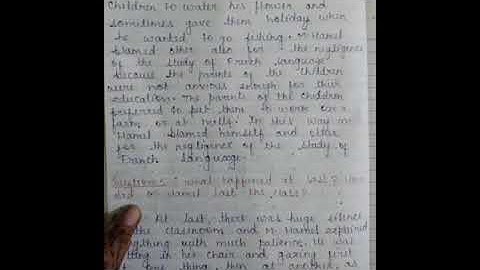 Children to water his flower and
sometimes gave them holiday when
he wanted to go fishing. M Hamel
blamed other also for the negligence
of the study of French language
because the parents of the children
were not anxious enough for their
education. The parents of the children
preferred to put them to work on a
farm or at mills. In this way M
Hamel blamed himself and other
for the negligence of the study of
French language.
Question 5: What happened at last? How
did M Hamel last the class?
At last, there was huge silence
the classroom and M. Hamel explained
everything with much patience. He was
sitting in his chair and gazing first
at one thing, then at another, as